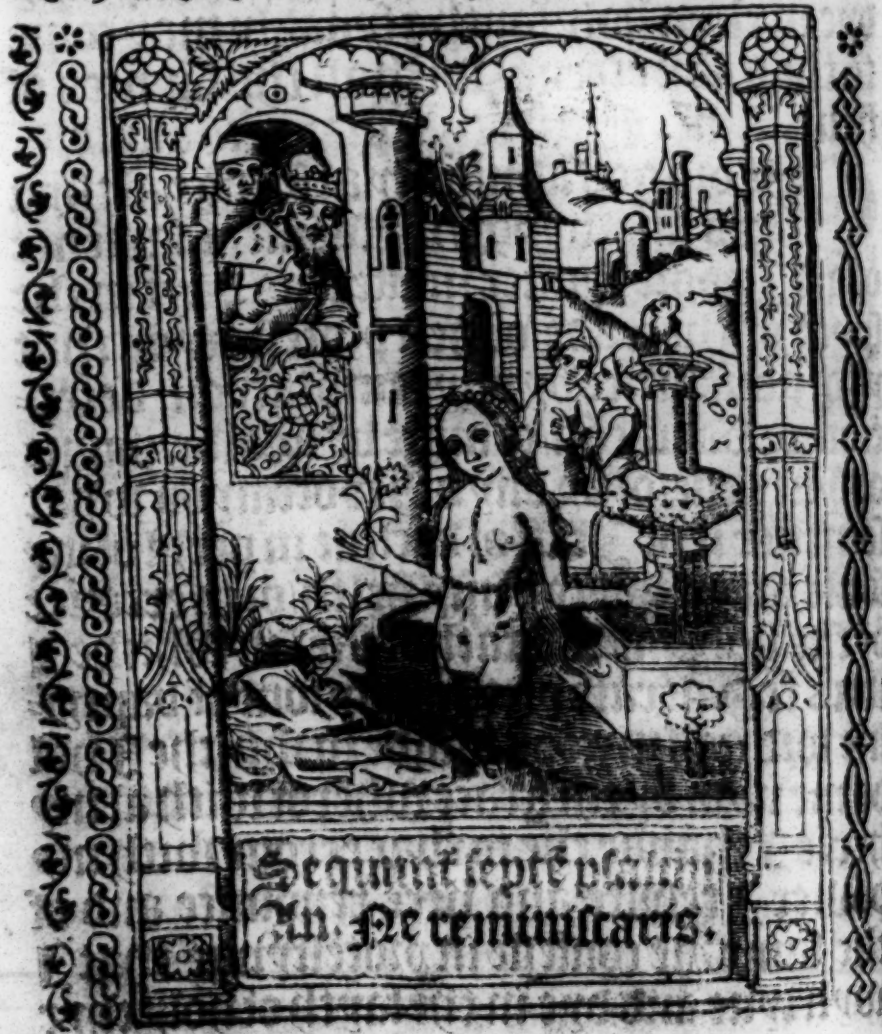 Sequunt̃ septẽ psalmi
An. Ne reminiscaris.